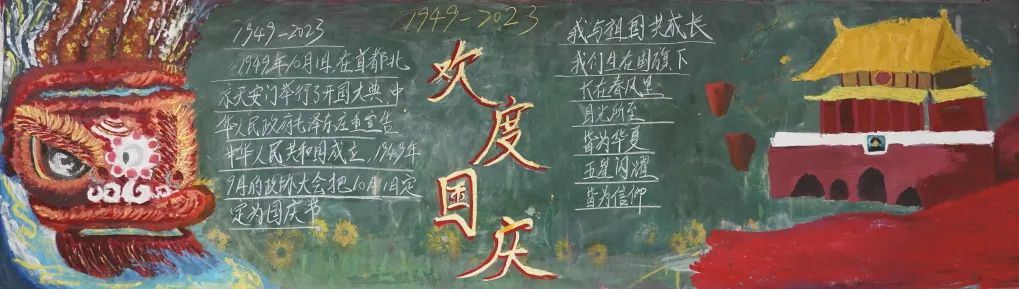 1949-2023
1949年10月1日,在首都北
京天安门举行了开国大典,中
华人民政府毛泽东主席宣告
中华人民共和国成立,1949年
9月的政协大会把10月1日定
定为国庆节
1949-2023
欢
度
国
庆
我与祖国共成长
我们生在国旗下
长在春风里
月光所至
皆为华夏
五星闪耀
皆为信仰